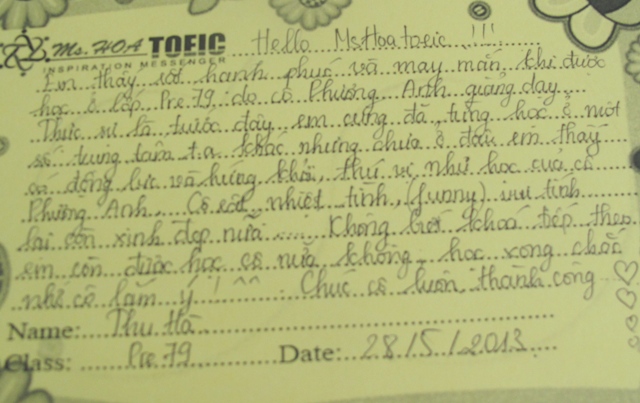 Ms. HOA TOEIC
INSPIRATION MESSENGER
Hello Ms Hoa toeic !!!
Em thấy rất hạnh phúc và may mắn khi được
học ở lớp Pre 79 do cô Phương Anh giảng dạy
Thực sự là trước đây em cũng đã từng học ở một
số trung tâm t.a khác nhưng chưa ở đâu em thấy
có động lực và hứng khởi, thú vị như học của cô
Phương Anh... Cô rất nhiệt tình, (funny) vui tính
lại còn xinh đẹp nữa ..... Không biết khoá tiếp theo
em còn được học cô nữa không, học xong chắc
nhớ cô lắm ý! ^^ Chúc cô luôn thành công
Name: Thu Hà
Class: Pre 79 Date: 28/5/2013